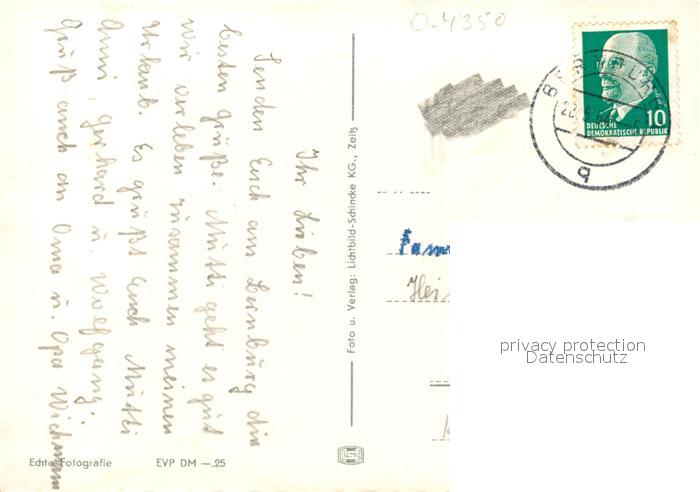 O-4350
Ihr Lieben!
Senden Euch aus Bernburg die
besten Grüße. Mutti geht es gut
wir verleben zusammen meinen
Urlaub. Es grüßt Euch Mutti
Anni, Gerhard u. Wolfgang.
Gruß auch an Oma u. Opa Wichmann
Echte Fotografie EVP DM —.25
Foto u. Verlag: Lichtbild-Schincke KG., Zeitz
DEUTSCHE
DEMOKRATISCHE REPUBLIK
10
BERNBURG
q
Fam
Hei
privacy protection
Datenschutz